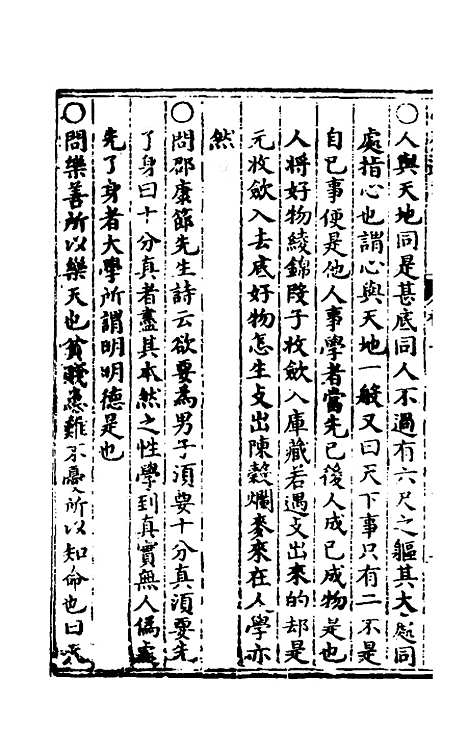 ○人與天地同是甚底同人不過有六尺之軀其大處同
處指心也謂心與天地一般又曰天下事只有二不是
自己事便是他人事學者當先己後人成己成物是也
人將好物綾錦段子收歛入庫藏若遇支出來的却是
元收歛入去底好物怎生支出陳穀爛麥來在人學亦
然
○問邵康節先生詩云欲要為男子須要十分真須要先
了身曰十分真者盡其本然之性學到真實無人偽處
先了身者大學所謂明明德是也
○問樂善所以樂天也貧賤患難不憂所以知命也曰